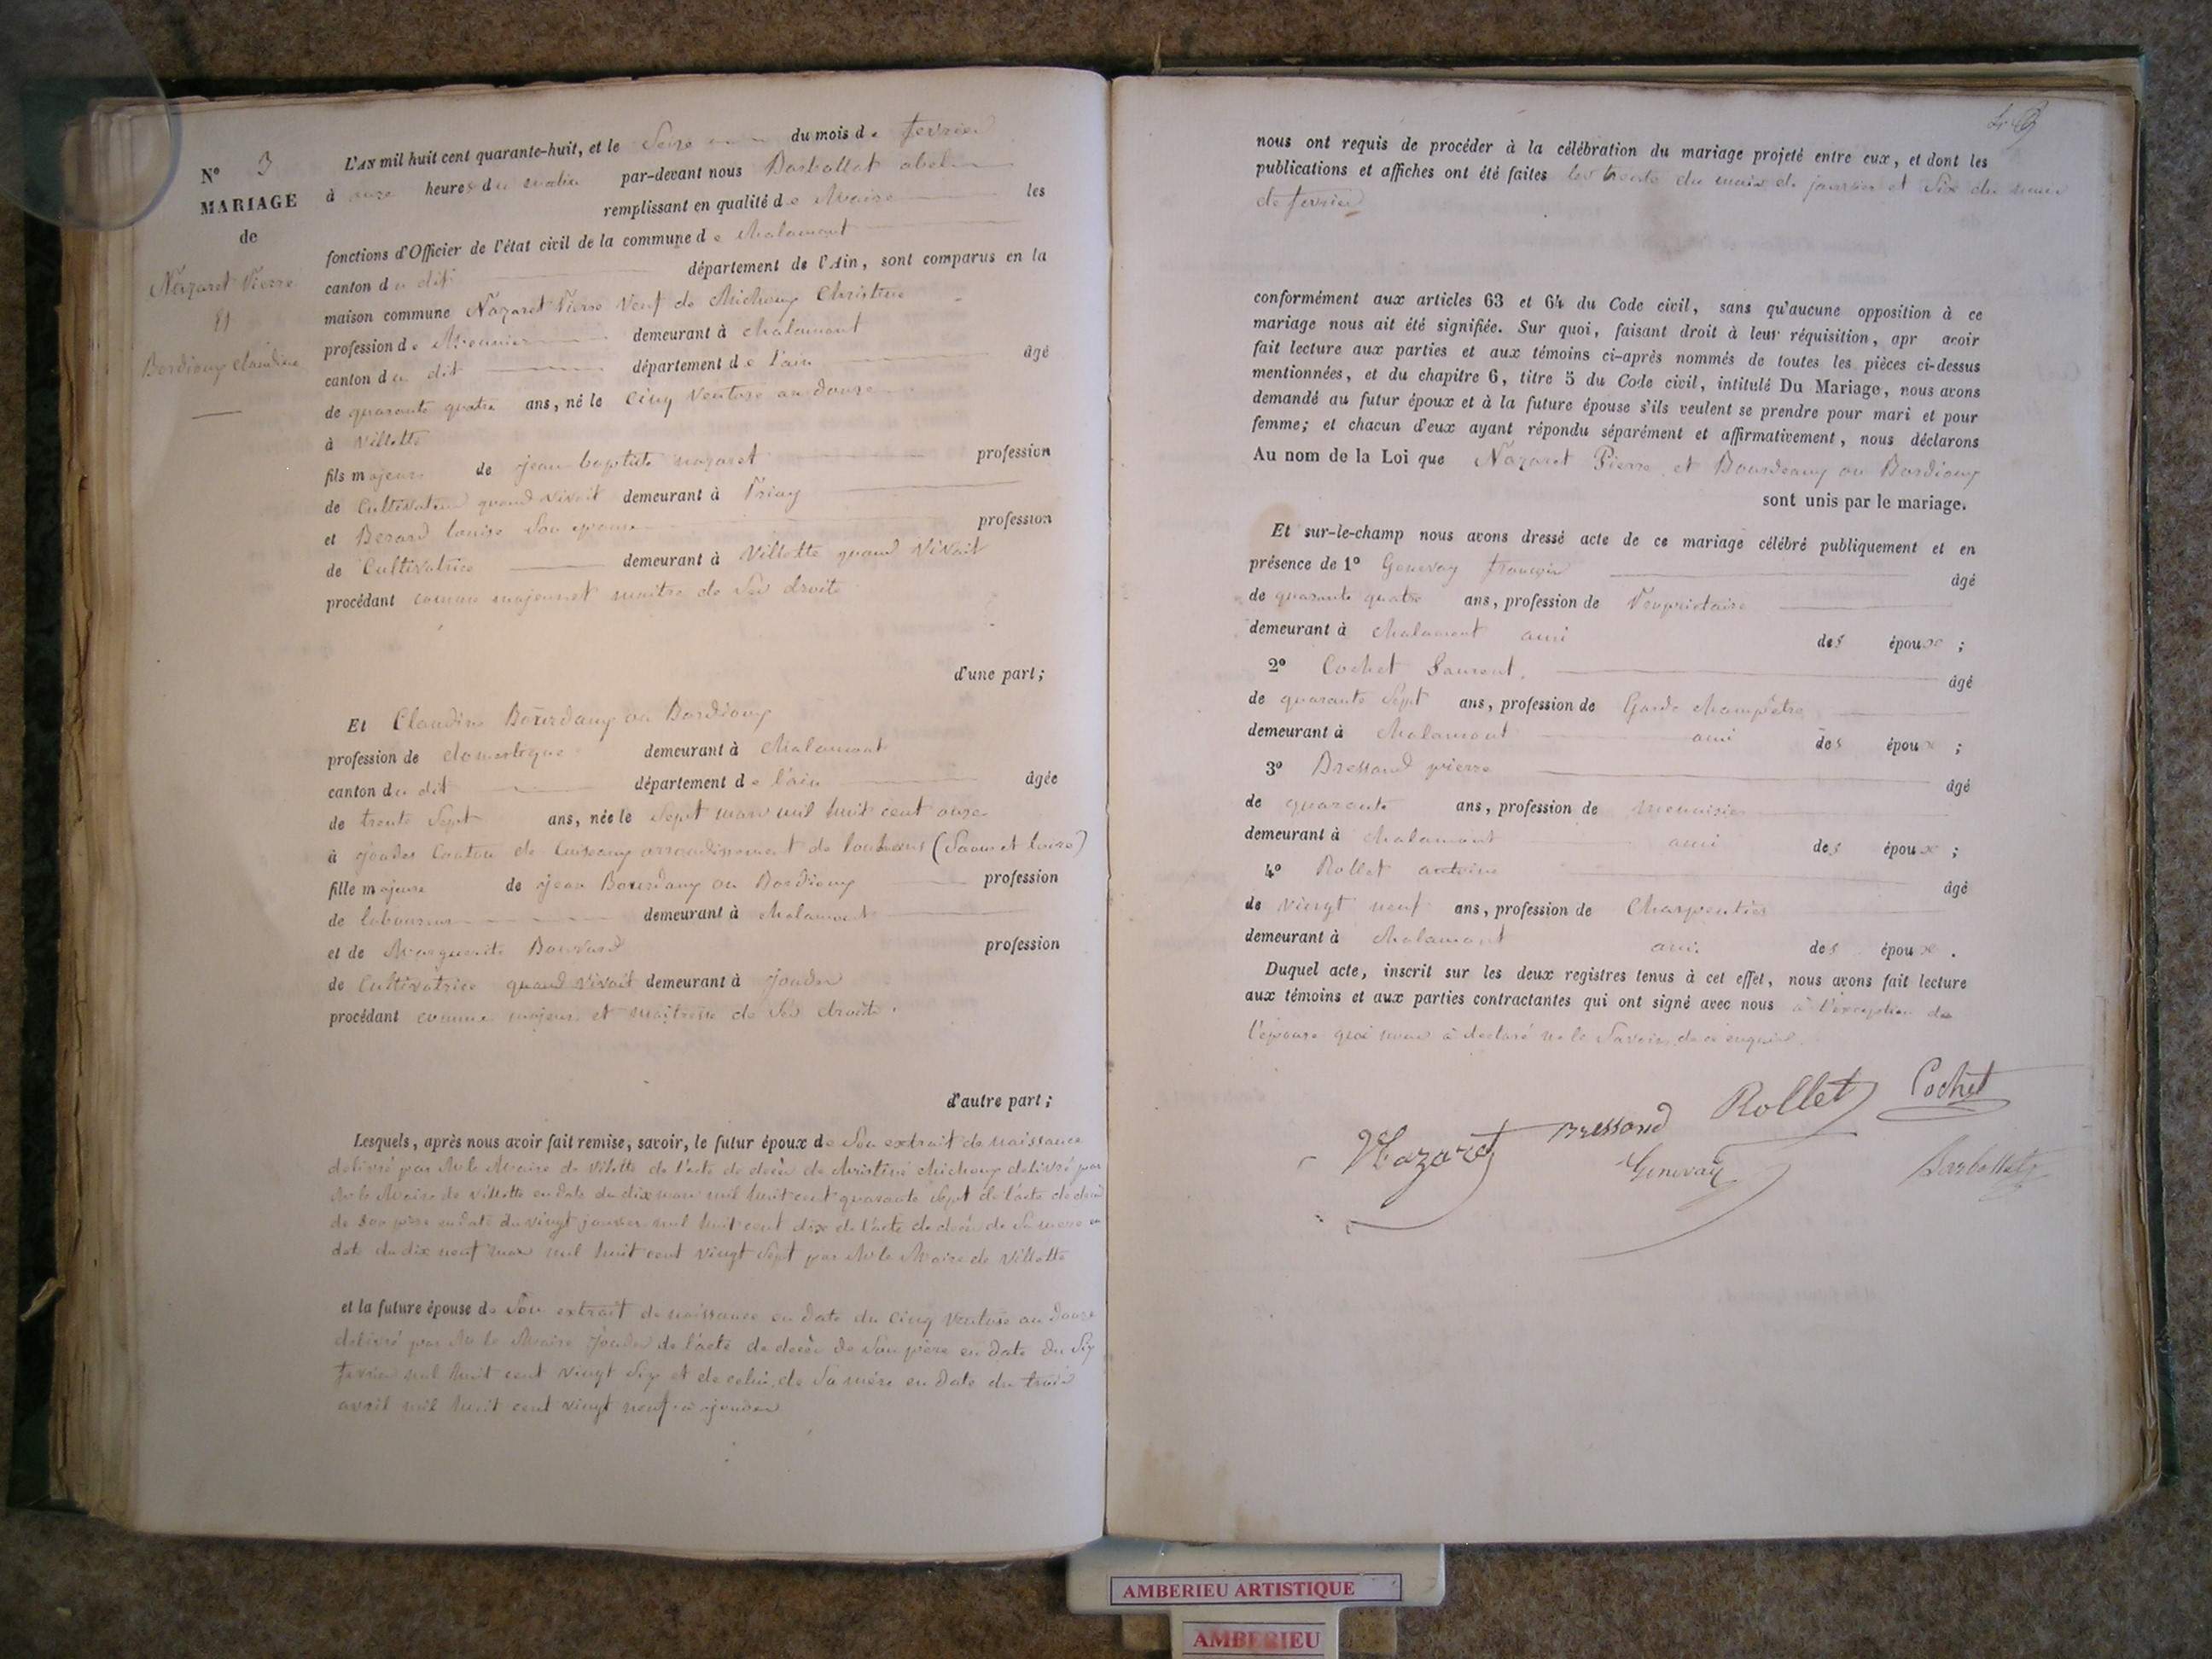 N° 3
MARIAGE
de
Nazaret Pierre
Et
Bordioux Claudine
L'AN mil huit cent quarante-huit, et le Seize du mois de fevrier
à onze heures du matin par-devant nous Barbollat abel
remplissant en qualité de Maire les
fonctions d'Officier de l'état civil de la commune de Chalamont
canton du dit département de l'Ain, sont comparus en la
maison commune Nazaret Pierre Veuf de Michoux Christine
profession de demeurant à chalamont
canton du dit département de l'ain âgé
de quarante quatre ans, né le cinq Ventose an douze
à Villette
fils majeur de jean baptiste nazaret profession
de Cultivateur quand vivait demeurant à Priay
et Berard louise Son epouse profession
de Cultivatrice demeurant à Villette quand Vivait
procédant comme majeur et maitre de Ses droits
d'une part;
Et Claudine Bourdaux ou Bordioux
profession de domestique demeurant à Chalamont
canton du dit département de l'ain âgée
de trente Sept ans, née le Sept mars mil huit cent onze
à joudes Canton de Cuiseaux arrondissement de louhans (Saone et loire)
fille majeure de jean Bourdaux ou Bordioux profession
de laboureur demeurant à chalamont
et de Marguerite Bouvard profession
de Cultivatrice quand vivait demeurant à Joudes
procédant comme majeure et maitresse de Ses droits.
d'autre part;
Lesquels, après nous avoir fait remise, savoir, le futur époux de Son extrait de naissance
delivré par Mr le Maire de Vilette de l'acte de decès de christine Michoux delivré par
Mr le Maire de Villette en date du dix mars mil huit cent quarante Sept de l'acte de decès
de Son père en date du vingt janvier mil huit cent dix de l'acte de decès de Sa mere en
date du dix neuf mars mil huit cent vingt Sept par Mr le Maire de Villette
et la future épouse de Son extrait de naissance en date du cinq Ventose an douze
delivré par Mr le Maire Joudes de l'acte de decès de Son père en date du Six
fevrier mil huit cent vingt Six et de celui de Sa mère en date du trois
avril mil huit cent vingt neuf à joudes
nous ont requis de procéder à la célébration du mariage projeté entre eux, et dont les
publications et affiches ont été faites les trente du mois de janvier et Six du mois
de fevrier
conformément aux articles 63 et 64 du Code civil, sans qu'aucune opposition à ce
mariage nous ait été signifiée. Sur quoi, faisant droit à leur réquisition, apr avoir
fait lecture aux parties et aux témoins ci-après nommés de toutes les pièces ci-dessus
mentionnées, et du chapitre 6, titre 5 du Code civil, intitulé Du Mariage, nous avons
demandé au futur époux et à la future épouse s'ils veulent se prendre pour mari et pour
femme; et chacun d'eux ayant répondu séparément et affirmativement, nous déclarons
Au nom de la Loi que Nazaret Pierre et Bourdeaux ou Bordioux
sont unis par le mariage.
Et sur-le-champ nous avons dressé acte de ce mariage célébré publiquement et en
présence de 1° Genevay françois âgé
de quarante quatre ans, profession de Propriétaire
demeurant à chalamont ami des époux ;
2° Cochet Laurent. âgé
de quarante Sept ans, profession de Garde champêtre
demeurant à Chalamont ami des époux ;
3° Bressand pierre âgé
de quarante ans, profession de menuisier
demeurant à Chalamont ami des époux ;
4° Rollet antoine âgé
de vingt neuf ans, profession de Charpentier
demeurant à chalamont ami des époux .
Duquel acte, inscrit sur les deux registres tenus à cet effet, nous avons fait lecture
aux témoins et aux parties contractantes qui ont signé avec nous à l'exception de
l'epouse qui nous à declaré ne le Savoir de ce enquise.
Nazaret Bressand Rollet Cochet
Genevay Barbollat
AMBERIEU ARTISTIQUE
AMBERIEU